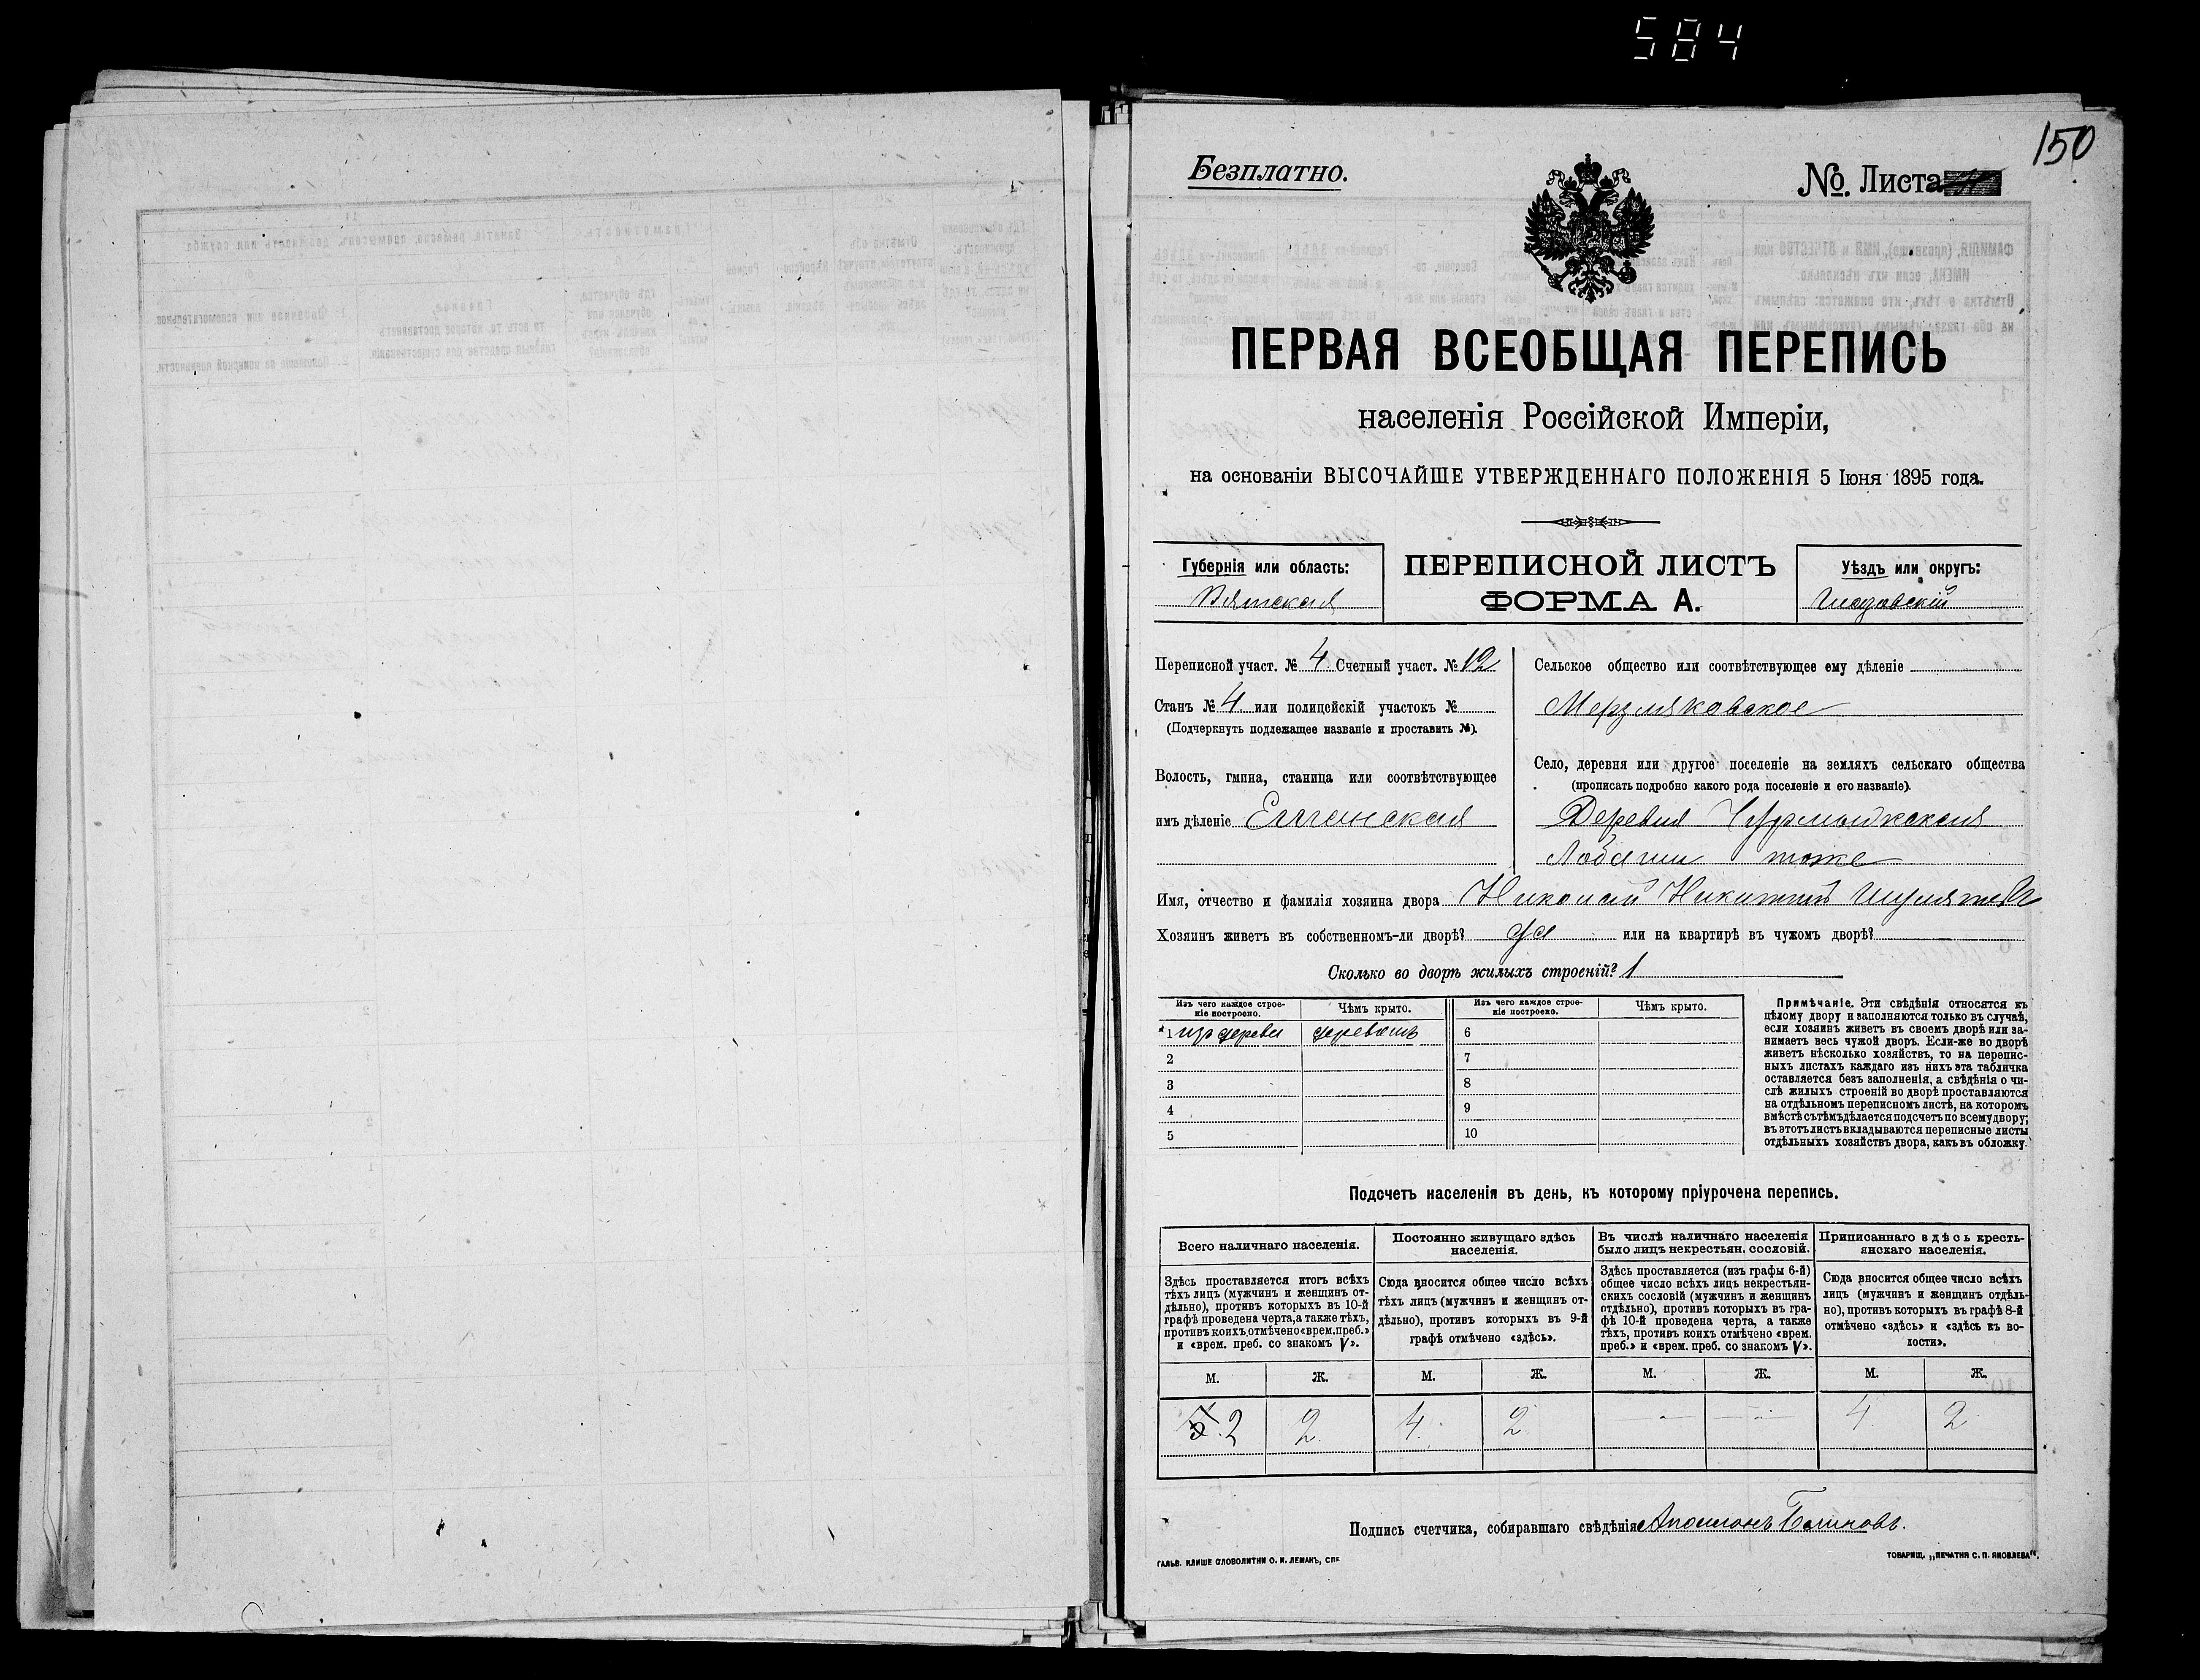 584
150
Безплатно.
№. Листа
ПЕРВАЯ ВСЕОБЩАЯ ПЕРЕПИСЬ
населенія Россійской Имперіи,
на основаніи ВЫСОЧАЙШЕ УТВЕРЖДЕННАГО ПОЛОЖЕНІЯ 5 Іюня 1895 года.
Губернія или область:
Вятская
ПЕРЕПИСНОЙ ЛИСТЪ
ФОРМА А.
Уѣздъ или округъ:
Глазовскій
Переписной участ. № 4 Счетный участ. № 12
Станъ № 4 или полицейскій участокъ №
(Подчеркнуть подлежащее названіе и проставить №).
Волость, гмина, станица или соотвѣтствующее
имъ дѣленіе Елганская
Сельское общество или соотвѣтствующее ему дѣленіе
Мерзляковское
Село, деревня или другое поселеніе на земляхъ сельскаго общества
(прописать подробно какого рода поселеніе и его названіе).
Деревня
Лобани тоже
Имя, отчество и фамилія хозяина двора Николай Никитинъ Шулятьевъ
Хозяинъ живетъ въ собственномъ-ли дворѣ? да или на квартирѣ въ чужомъ дворѣ?
Сколько во дворѣ жилыхъ строеній? 1
Изъ чего каждое строе-
ніе построено.
Чѣмъ крыто.
Изъ чего каждое строе-
ніе построено.
Чѣмъ крыто.
1 изъ дерева деревомъ 6
2 7
3 8
4 9
5 10
Примѣчаніе. Эти свѣдѣнія относятся къ
цѣлому двору и заполняются только въ случаѣ,
если хозяинъ живетъ въ своемъ дворѣ или за-
нимаетъ весь чужой дворъ. Если-же во дворѣ
живетъ нѣсколько хозяйствъ, то на перепис-
ныхъ листахъ каждаго изъ нихъ эта табличка
оставляется безъ заполненія, а свѣдѣнія о чи-
слѣ жилыхъ строеній во дворѣ проставляются
на отдѣльномъ переписномъ листѣ, на которомъ
вмѣстѣ съ тѣмъ дѣлается подсчетъ по всему двору;
въ этотъ листъ вкладываются переписные листы
отдѣльныхъ хозяйствъ двора, какъ въ обложку.
Подсчетъ населенія въ день, къ которому пріурочена перепись.
Всего наличнаго населенія.
Здѣсь проставляется итогъ всѣхъ
тѣхъ лицъ (мужчинъ и женщинъ от-
дѣльно), противъ которыхъ въ 10-й
графѣ проведена черта, а также тѣхъ,
противъ коихъ отмѣчено «врем. преб.»
и «врем. преб. со знакомъ V».
Постоянно живущаго здѣсь
населенія.
Сюда вносится общее число всѣхъ
тѣхъ лицъ (мужчинъ и женщинъ от-
дѣльно), противъ которыхъ въ 9-й
графѣ отмѣчено «здѣсь».
Въ числѣ наличнаго населенія
было лицъ некрестьян. сословій.
Здѣсь проставляется (изъ графы 6-й)
общее число всѣхъ лицъ некрестьян-
скихъ сословій (мужчинъ и женщинъ
отдѣльно), противъ которыхъ въ гра-
фѣ 10-й проведена черта, а также
тѣхъ, противъ коихъ отмѣчено «врем.
преб.» и «врем. преб. со знакомъ V».
Приписаннаго здѣсь кресть-
янскаго населенія.
Сюда вносится общее число всѣхъ
лицъ (мужчинъ и женщинъ отдѣль-
но), противъ которыхъ въ графѣ 8-й
отмѣчено «здѣсь» и «здѣсь къ во-
лости».
М. Ж. М. Ж. М. Ж. М. Ж.
2 2 4 2 — — 4 2
Подпись счетчика, собиравшаго свѣдѣнія Аполлонъ
ГАЛЬВ. КЛИШЕ СЛОВОЛИТНИ О. И. ЛЕМАНЪ, СПБ
ТОВАРИЩ. „ПЕЧАТНЯ С. П. ЯКОВЛЕВА“.